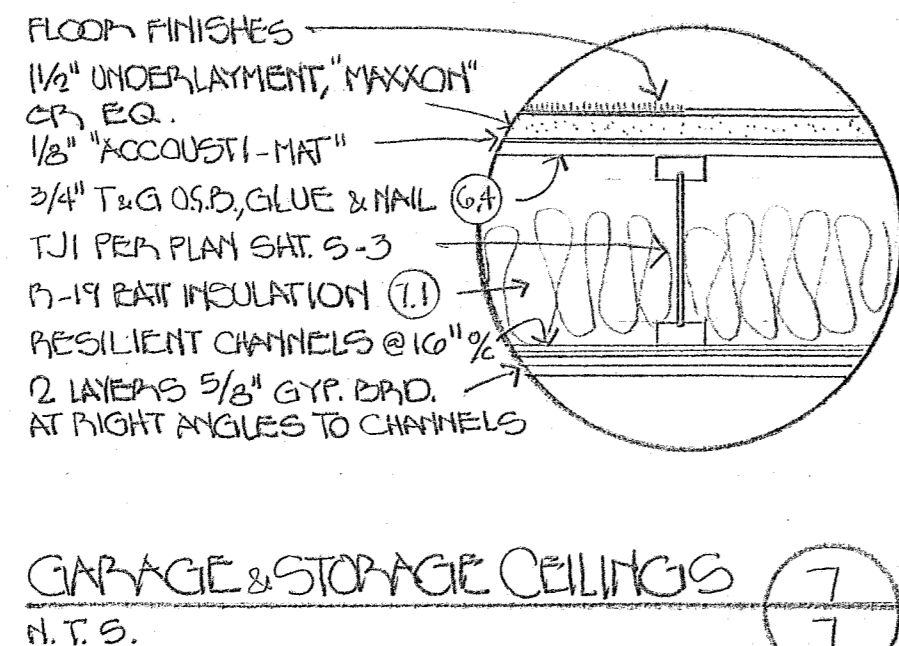 FLOOR FINISHES
1 1/2" UNDERLAYMENT, "MAXXON"
OR EQ.
1/8" "ACCOUSTI-MAT"
3/4" T&G O.S.B., GLUE & NAIL 6.4
TJI PER PLAN SHT. S-3
R-19 BATT INSULATION 7.1
RESILIENT CHANNELS @ 16" o/c
2 LAYERS 5/8" GYP. BRD.
AT RIGHT ANGLES TO CHANNELS
GARAGE & STORAGE CEILINGS
N.T.S.
7
7